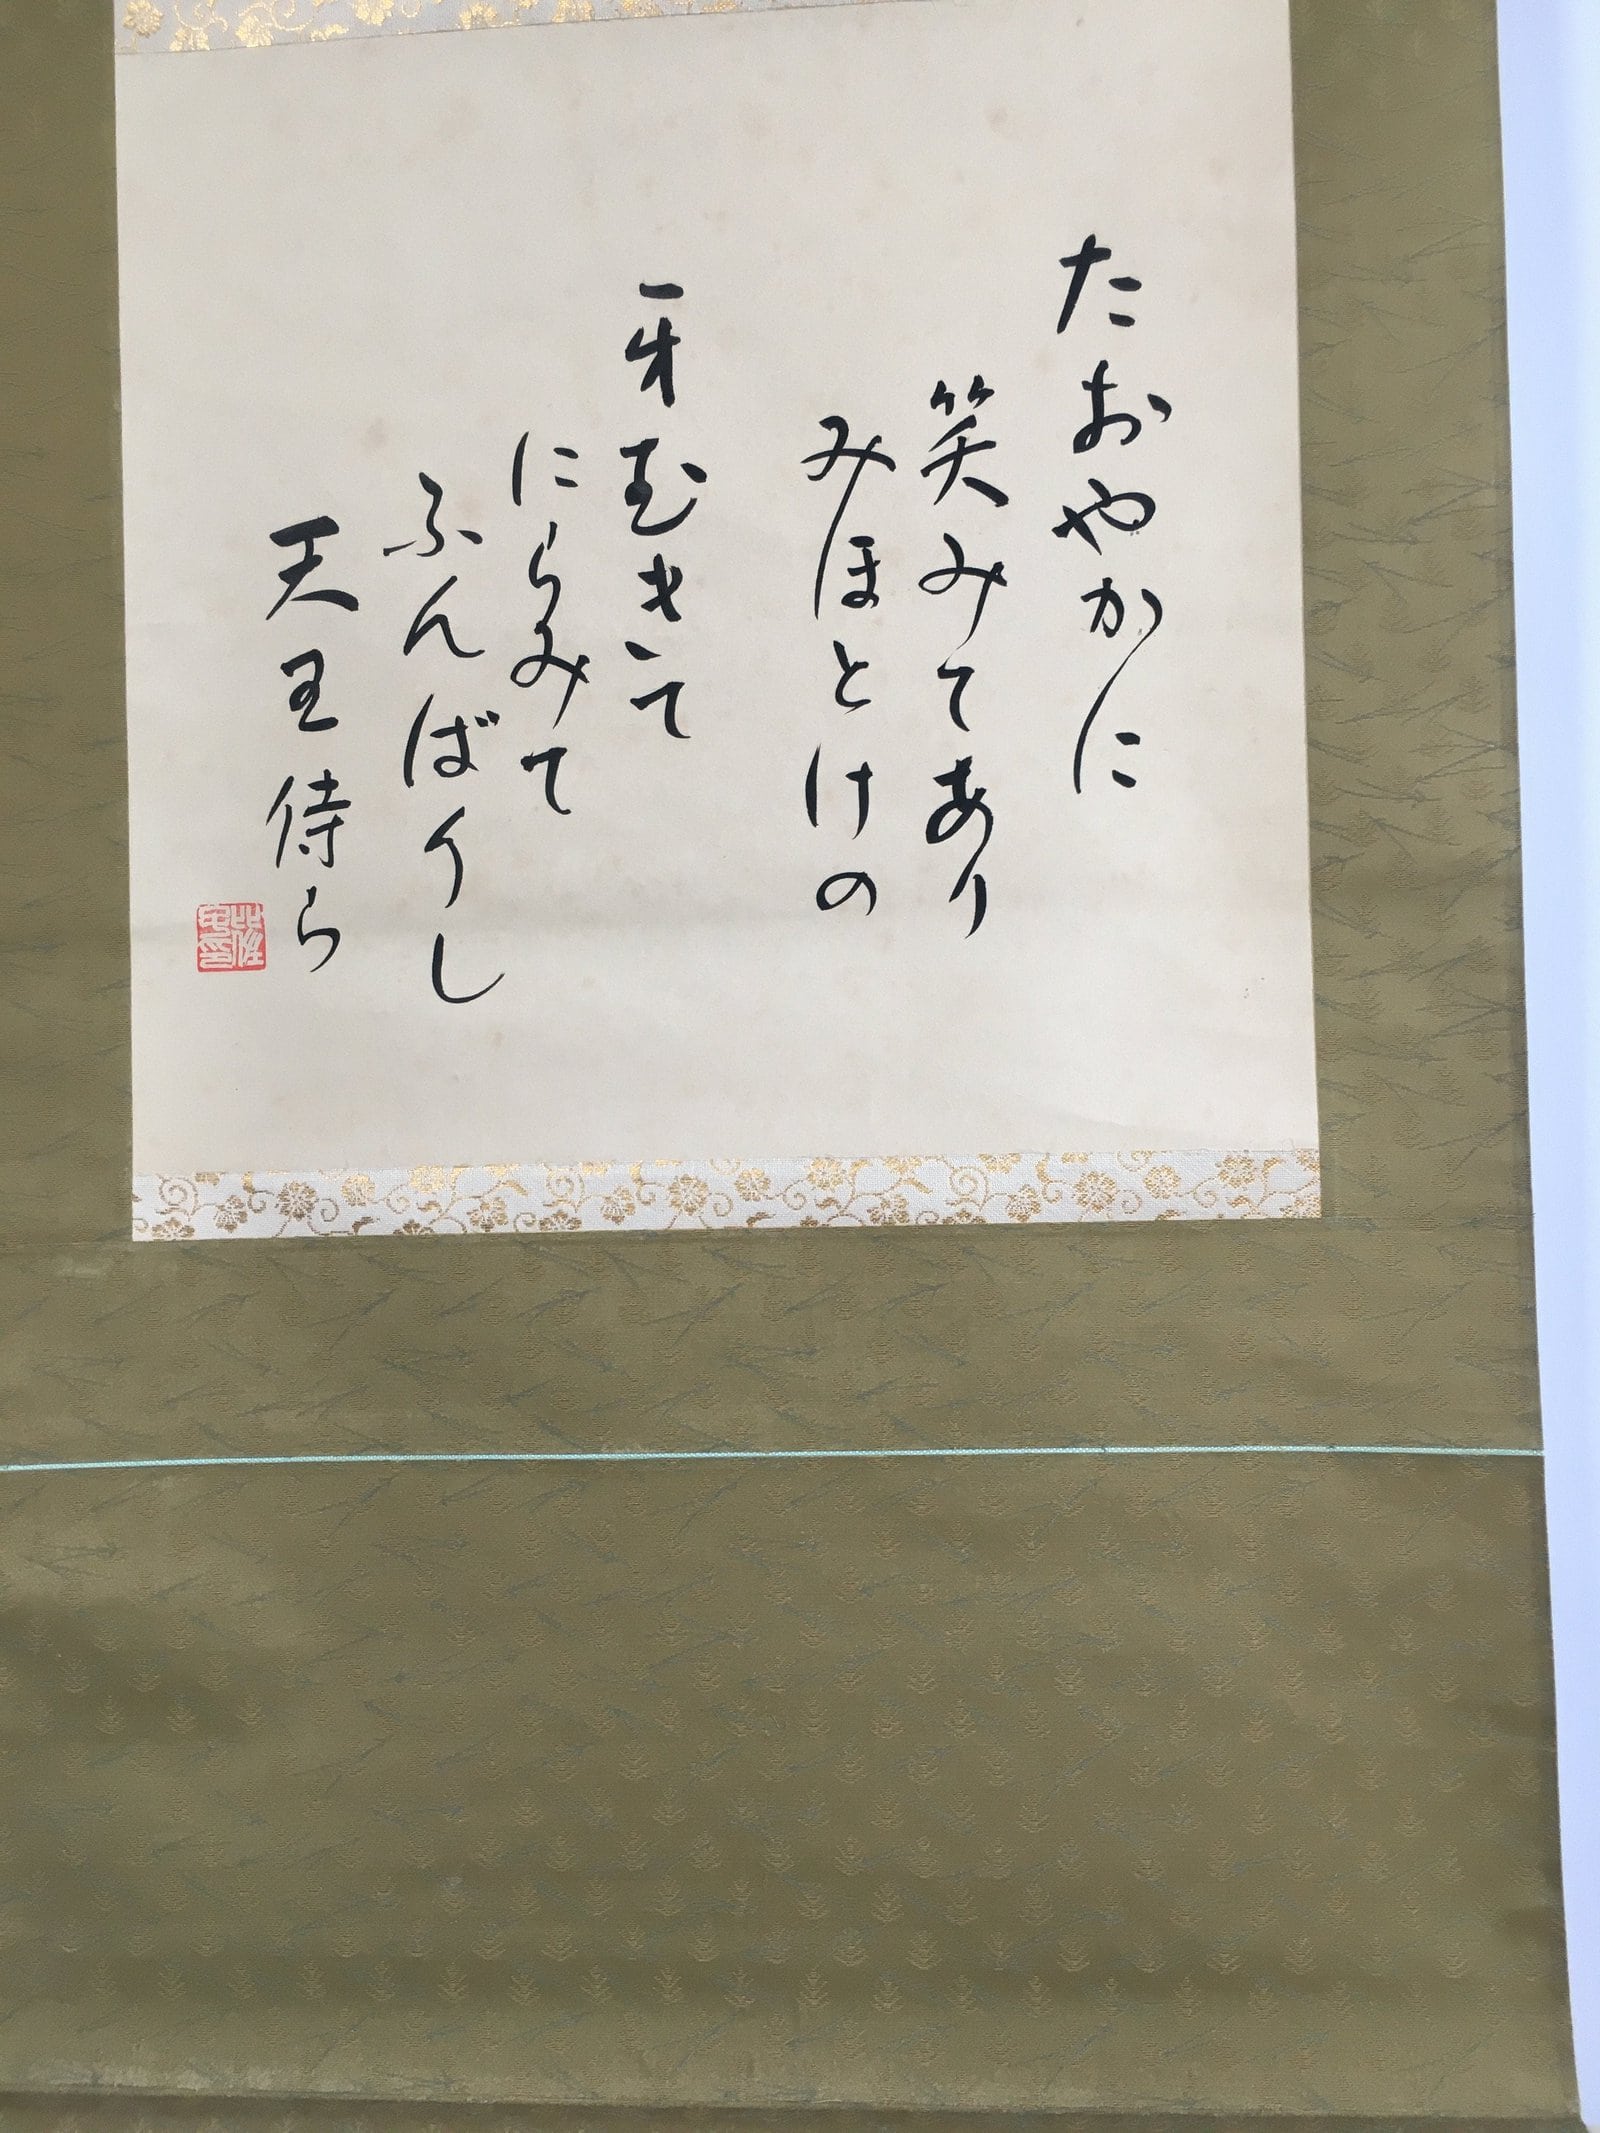 たおやかに
笑みてあり
みほとけの
牙むきて
にらみて
ふんばりし
天王侍ら